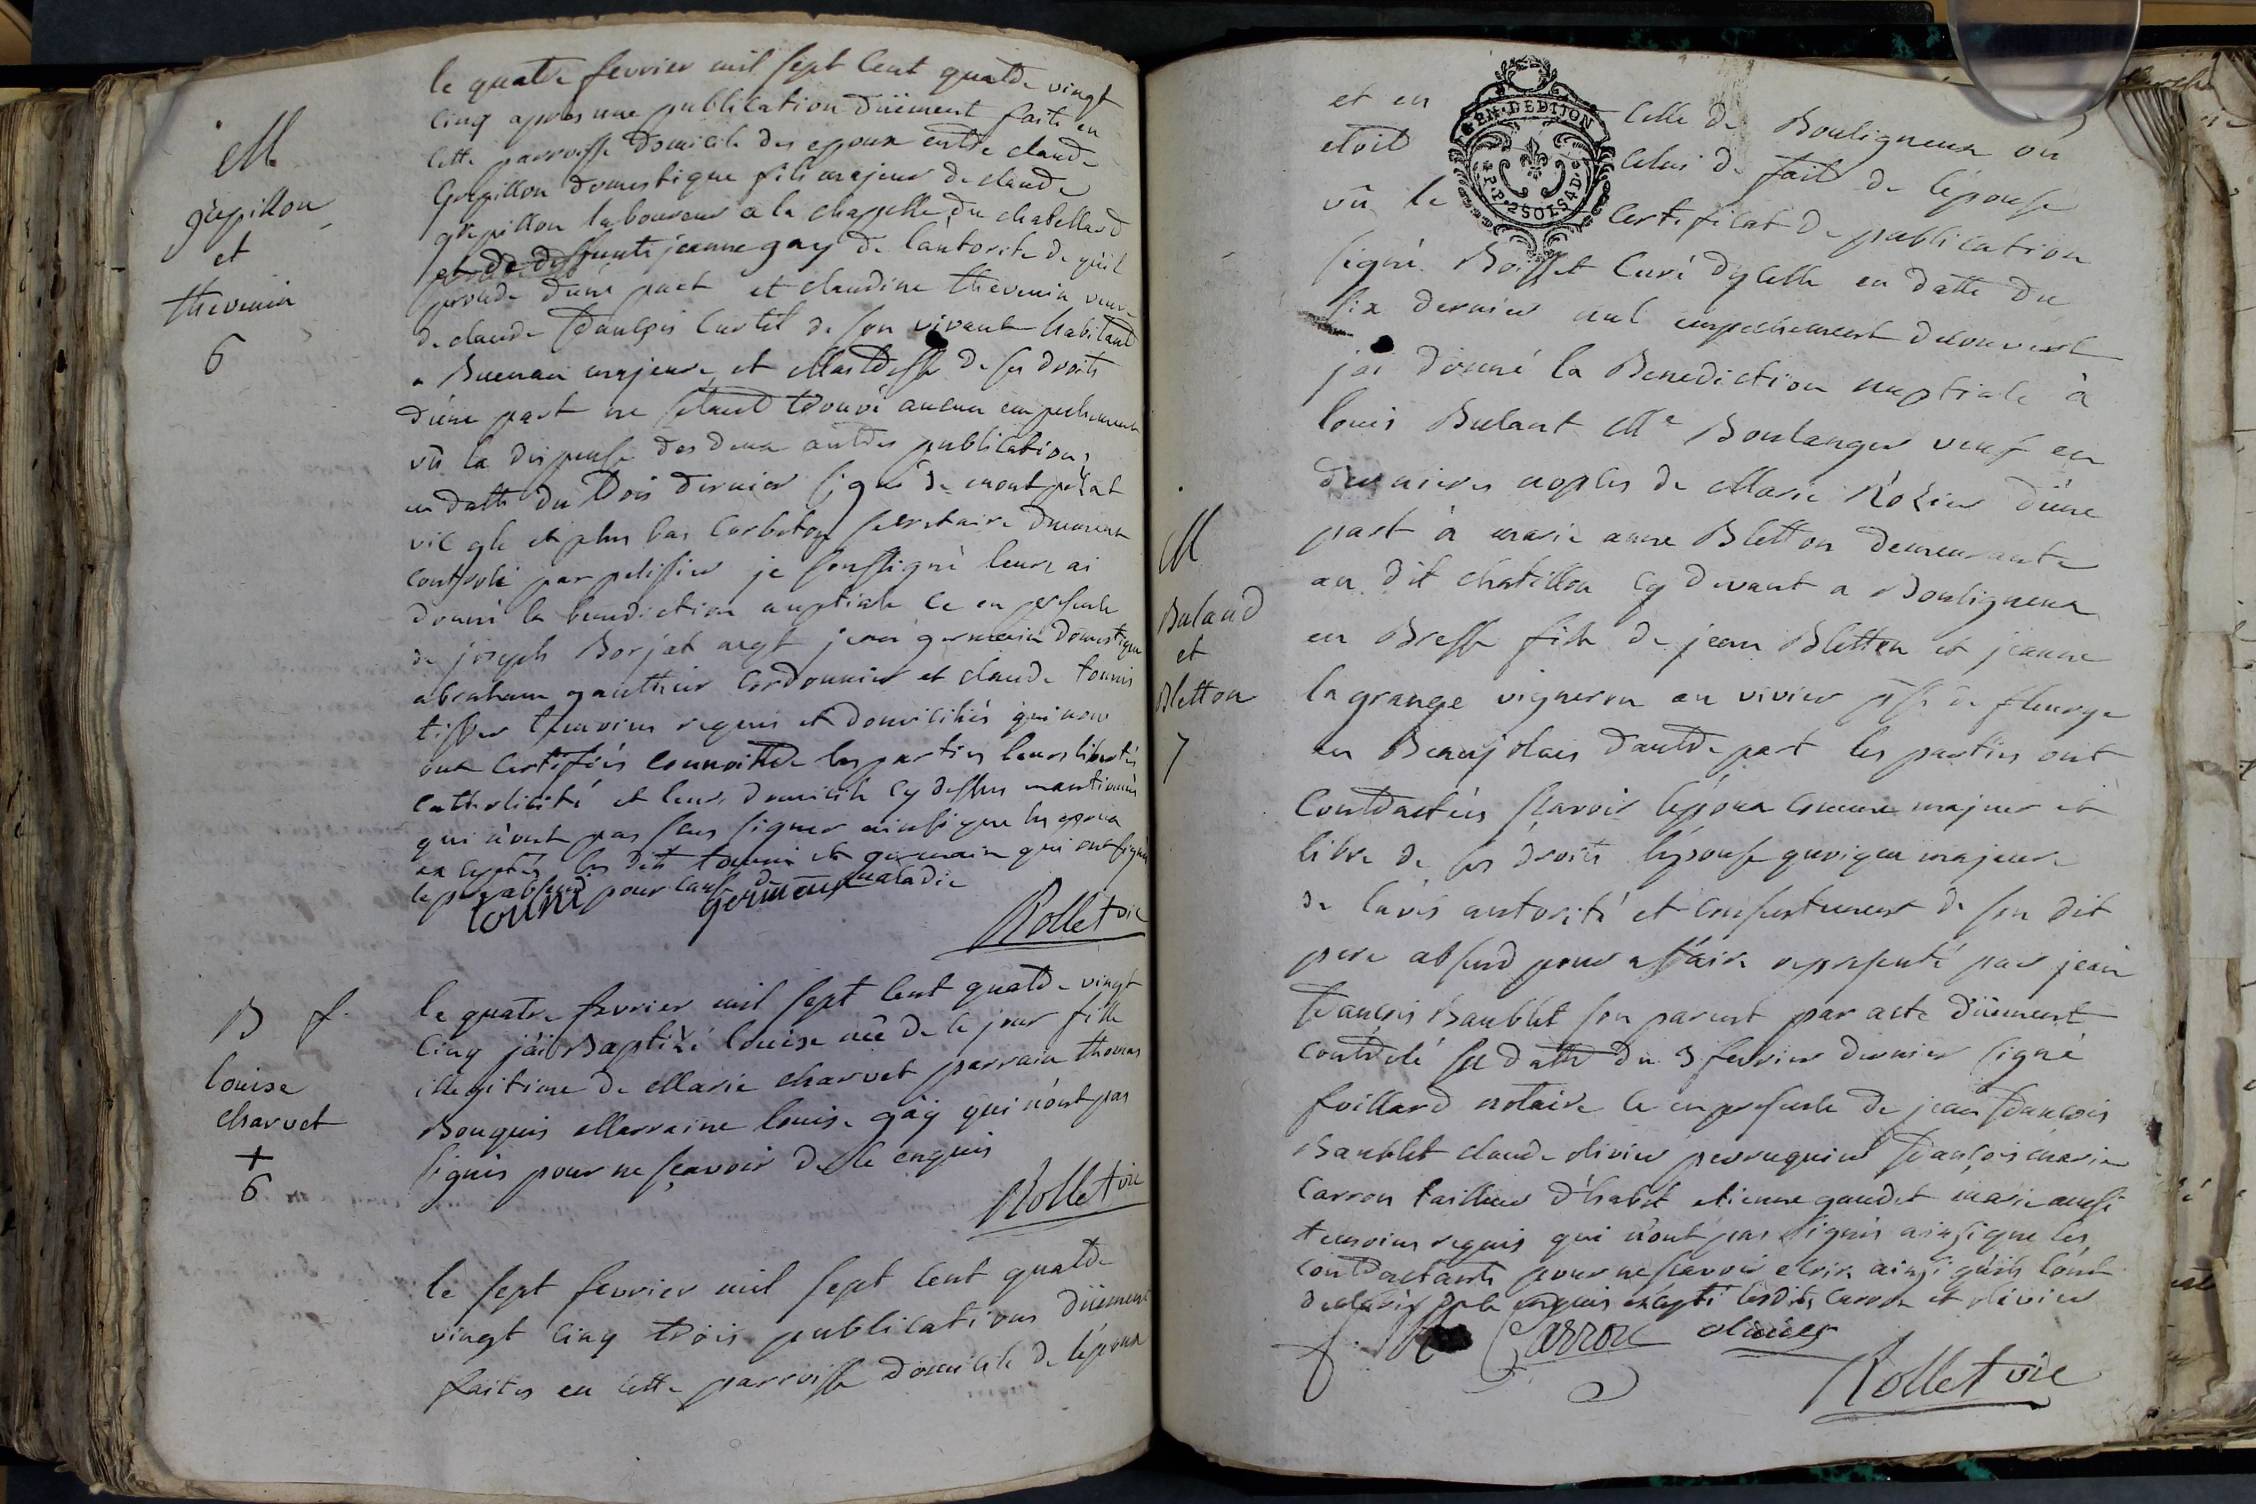 le quatre fevrier mil sept cent quatre vingt
cinq apres une publication düement faite en
cette parroisse domicile des epoux entre claude
Grepillon domestique fils majeur de claude
grepillon laboureur a la chappelle du chatellard
et de deffunte jeanne gay de l'autorité de qu'il
procede d'une part et claudine thevenin veuve
de claude françois Curtil de son vivant habitant
a Buenan majeure et maitresse de ses droits
d'une part ne s'etant trouvé aucun empechement
vû la dispense des deux autres publications
en datte du trois dernier signé de montpezat
vic gle et plus bas Corboton secretaire duement
controlé par pelissier je soussigné leurs ai
donné la benediction nuptiale ce en presence
de joseph Borjat negt jean germain domestique
abraham gauthier Cordonnier et claude tounis
tissier temoins requis et domiciliés qui nous
ont certifiés connoitre les parties leurs libertés
catholicité et leurs domicile cy dessus mantionnés
qui n'ont pas sçus signer ainsi que les epoux
exceptés les dits tounis et germain qui ont signés
le pere absend pour cause de maladie
M
grepillon
et
thevenin
6
touni
germain
Rollet vic
B f.
louise
charvet
+
6
le quatre fevrier mil sept cent quatre vingt
cinq j'ai Baptizé louise née de ce jour fille
illegitime de Marie charvet parrain thomas
Bouquis Marraine louise gay qui n'ont pas
signés pour ne sçavoir de ce enquis
Rollet vic
le sept fevrier mil sept cent quatre
vingt cinq trois publications düement
faites en cette parroisse domicile de l'epoux
et en celle de Bouligneux où
etoit celui de fait de l'epouse
vû le certificat de publication
GEN. DE DIJON
P. P. 2 SOLS 4 D.
signé Boisset Curé d'ycelle en datte du
six dernier nul empechement decouvert
j'ai donné la Benediction nuptiale à
louis Bulant Me Boulanger veuf en
dernieres noples de Marie Rozier d'une
part à marie anne Bletton demeurante
au dit chatillon cy devant a Bouligneux
en Bresse fille de jean Bletton et jeanne
lagrange vigneron au vivier psse de fleurye
en Beaujolais d'autre part les parties ont
contractées sçavoir l'epoux comme majeur et
libre de ses droits l'epouse quoique majeure
de l'avis autorité et consentement de son dit
pere absend pour affaire representé par jean
françois Baublet son parent par acte düement
controlé en datte du 3 fevrier dernier signé
foillard notaire ce en presence de jean françois
Baublet claude olivier perruquier françois marie
Carron tailleur d'habit etienne gaudet marie aussi
temoins requis qui n'ont pas signés ainsi que les
contractants pour ne sçavoir ecrire ainsi qu'ils l'ont
declarés de ce enquis excepté lesdits Carron et olivier
M
Buland
et
Bletton
7
f. Carron olivier
Rollet vic